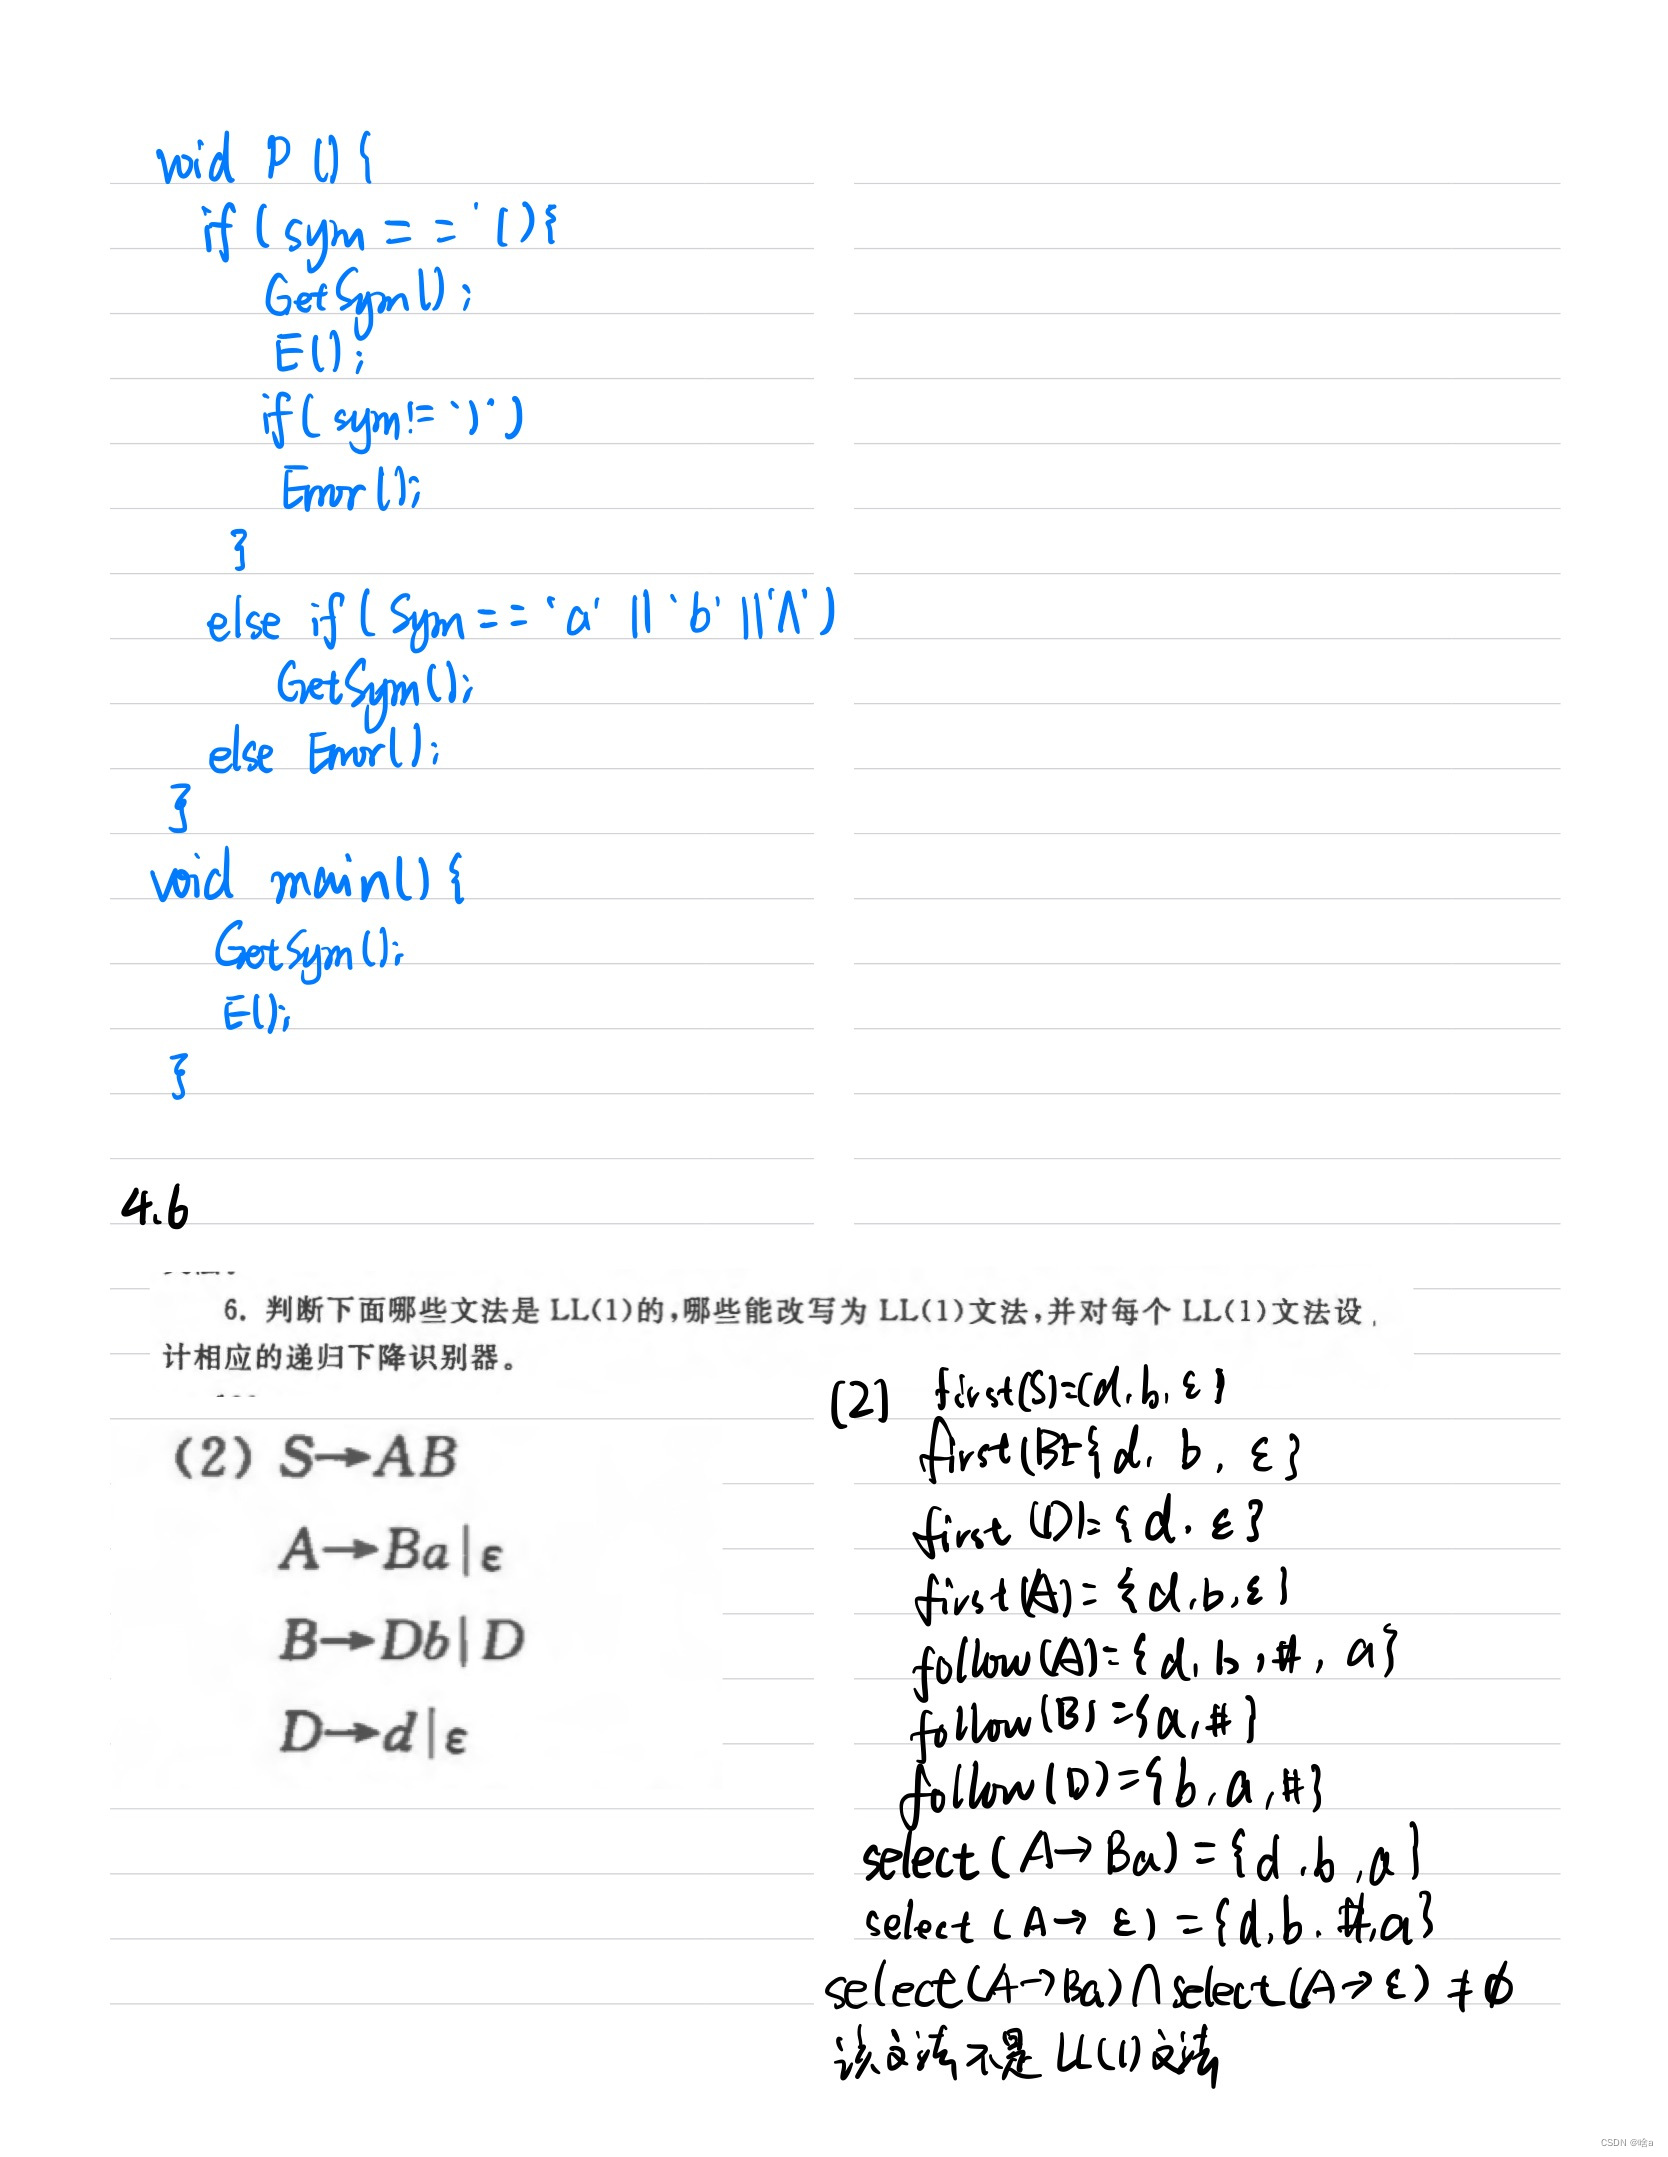 void P(){
if(sym=='(){
GetSym();
E();
if(sym!=')')
Error();
}
else if(Sym=='a'||'b'||'∧')
GetSym();
else Error();
}
void main(){
GetSym();
E();
}
4.6
6. 判断下面哪些文法是 LL(1)的,哪些能改写为 LL(1)文法,并对每个 LL(1)文法设
计相应的递归下降识别器。
(2) S→AB
A→Ba|ε
B→Db|D
D→d|ε
(2) first(S)={d,b,ε}
first(B)={d,b,ε}
first(D)={d,ε}
first(A)={d,b,ε}
follow(A)={d,b,#,a}
follow(B)={a,#}
follow(D)={b,a,#}
select(A→Ba)={d,b,a}
select(A→ε)={d,b.#,a}
select(A→Ba)∩select(A→ε)≠φ
该文法不是LL(1)文法
CSDN @啥a